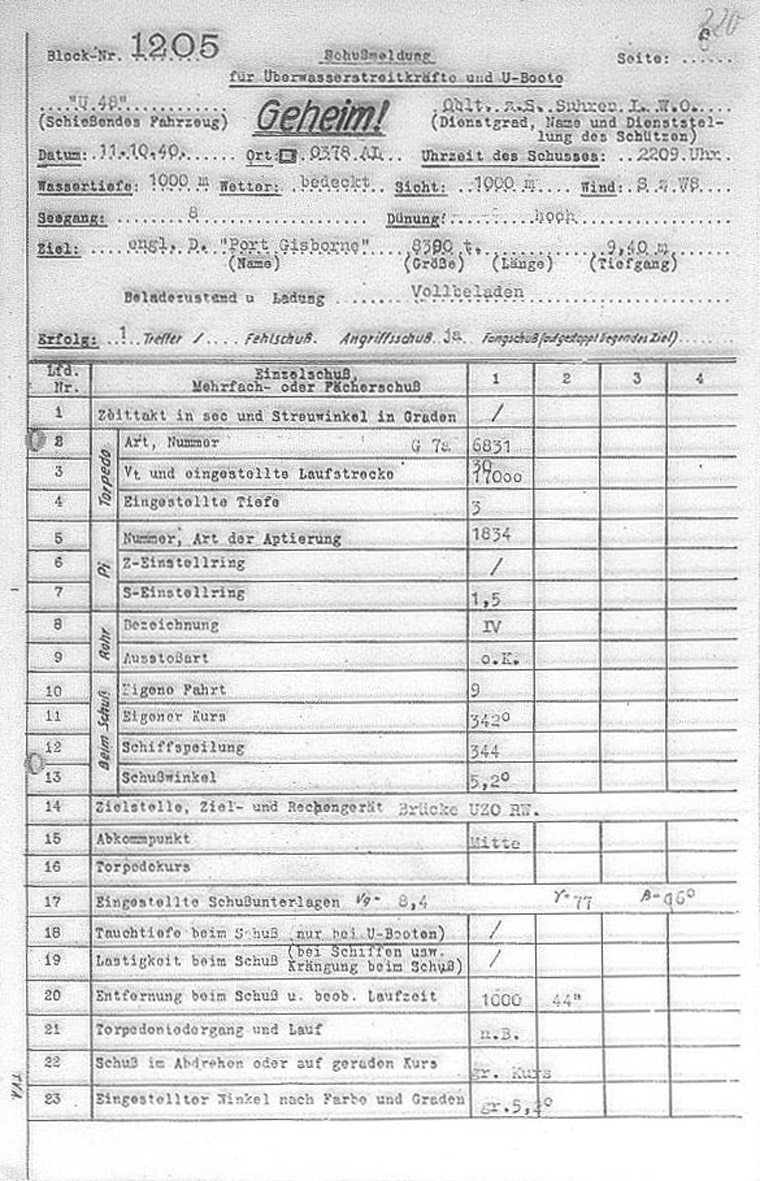 220
Block-Nr. 1205 Schußmeldung Seite: 6
für Überwasserstreitkräfte und U-Boote
"U.48" Geheim! Oblt. z.S. Suhren I. W.O.
(Schießendes Fahrzeug) (Dienstgrad, Name und Dienststel-
lung des Schützen)
Datum: 11.10.40. Ort: 0378 AL Uhrzeit des Schusses: 2209 Uhr.
Wassertiefe: 1000 m Wetter: bedeckt Sicht: 1000 m Wind: S
Seegang: 8 Dünung: hoch
Ziel: engl. D. "Port Gisborne" 8390 t. 9,40 m
(Name) (Größe) (Länge) (Tiefgang)
Beladezustand u Ladung Vollbeladen
Erfolg: 1 Treffer / Fehlschuß. Angriffsschuß ja Fangschuß (auf gestoppt liegendes Ziel)
Lfd. Nr. Einzelschuß, Mehrfach- oder Fächerschuß 1 2 3 4
1 Zeittakt in sec und Streuwinkel in Graden /
Torpedo
2 Art, Nummer G 7a 6831
3 Vt und eingestellte Laufstrecke 30 11000
4 Eingestellte Tiefe 3
Pi
5 Nummer, Art der Aptierung 1834
6 Z-Einstellring /
7 S-Einstellring 1,5
Rohr
8 Bezeichnung IV
9 Ausstoßart o.K.
Beim Schuß
10 Eigene Fahrt 9
11 Eigener Kurs 342°
12 Schiffspeilung 344
13 Schußwinkel 5,2°
14 Zielstelle, Ziel- und Rechengerät Brücke UZO RW.
15 Abkommpunkt Mitte
16 Torpedokurs
17 Eingestellte Schußunterlagen Vg= 8,4 γ=77 B=96°
18 Tauchtiefe beim Schuß (nur bei U-Booten) /
19 Lastigkeit beim Schuß (bei Schiffen usw. Krängung beim Schuß) /
20 Entfernung beim Schuß u. beob. Laufzeit 1000 44"
21 Torpedoniedergang und Lauf n.B.
22 Schuß im Abdrehen oder auf geraden Kurs gr. Kurs
23 Eingestellter Winkel nach Farbe und Graden